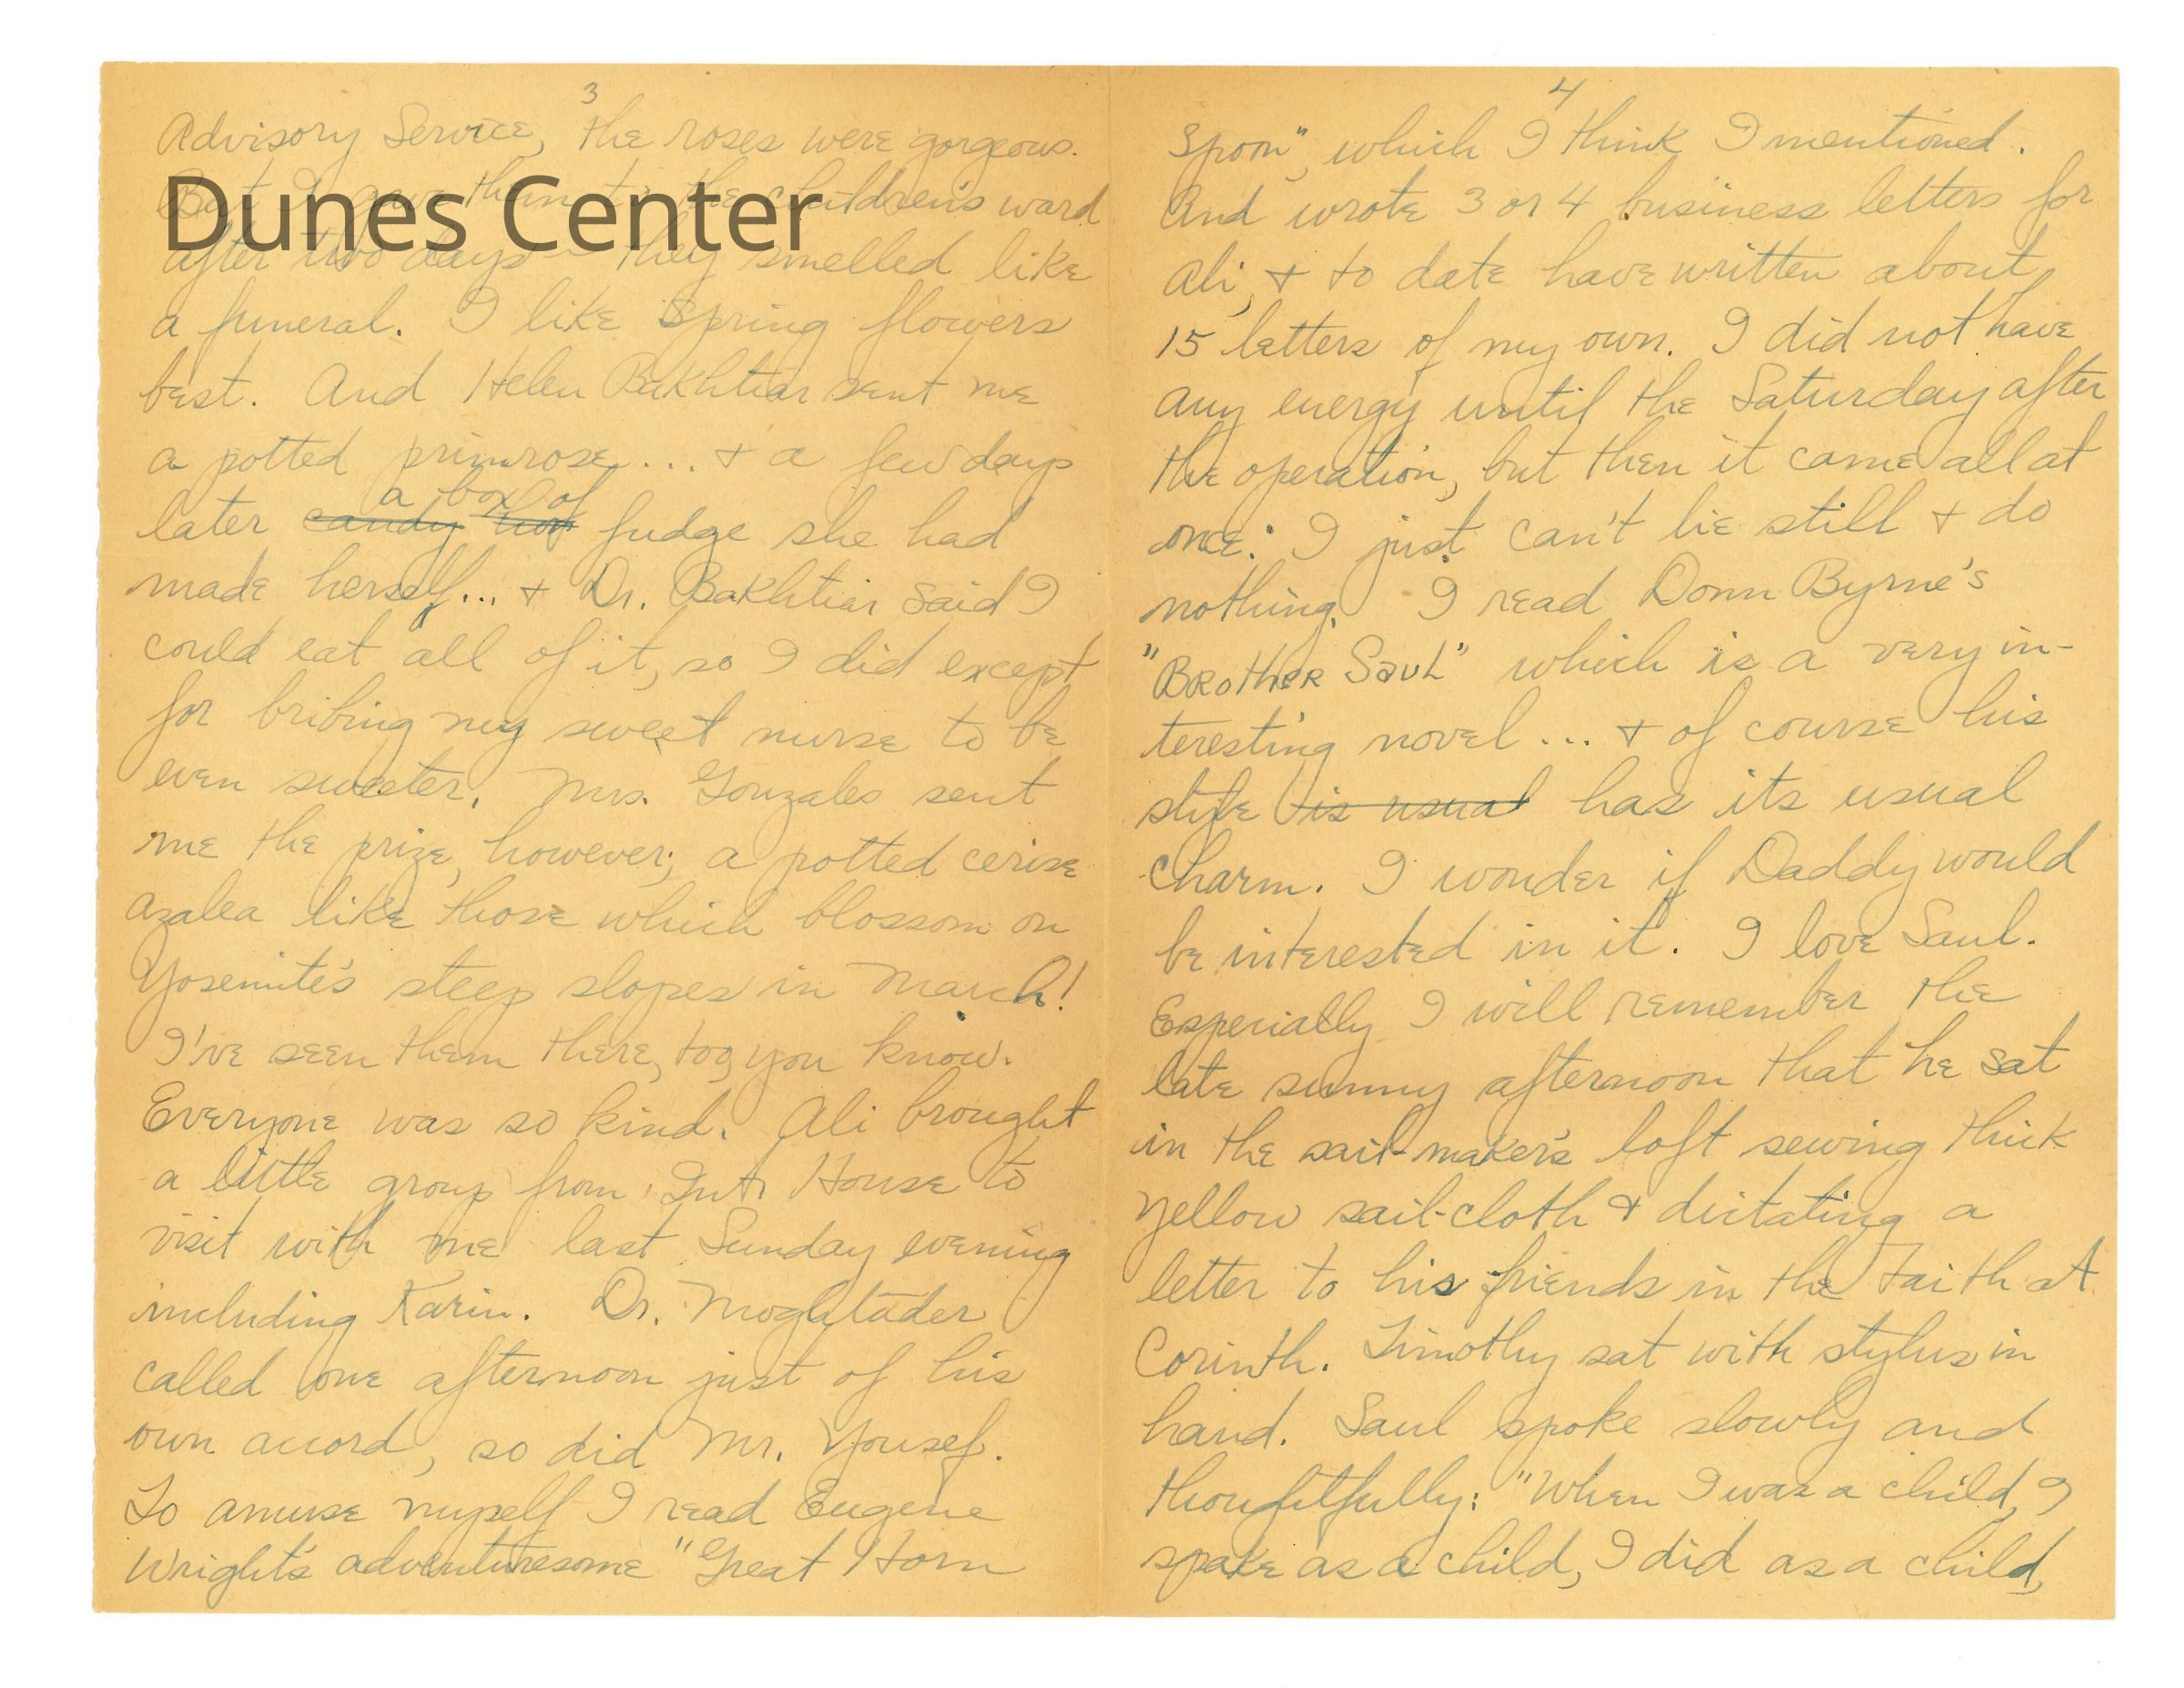 3
Advisory Service, the roses were gorgeous.
But I gave them to the children's ward
Dunes Center
after two days – they smelled like
a funeral. I like Spring flowers
best. And Helen Bakhtiar sent me
a potted primrose... + a few days
a box of
later candy box fudge she had
made herself... + Dr. Bakhtiar said I
could eat all of it, so I did except
for bribing my sweet nurse to be
even sweeter. Mrs. Gonzales sent
me the prize, however; a potted cerise
azalea like those which blossom on
Yosemite's steep slopes in March!
I've seen them there, too, you know.
Everyone was so kind. Ali brought
a little group from Int. House to
visit with me last Sunday evening
including Karin. Dr. Moghtader
called one afternoon just of his
own accord, so did Mr. Yousef.
To amuse myself I read Eugene
Wright's adventuresome "Great Horn
4
Spoon", which I think I mentioned.
And wrote 3 or 4 business letters for
Ali, + to date have written about
15 letters of my own. I did not have
any energy until the Saturday after
the operation, but then it came all at
once. I just can't lie still + do
nothing. I read Donn Byrne's
"Brother Saul" which is a very in-
teresting novel... + of course his
style is usual has its usual
charm. I wonder if Daddy would
be interested in it. I love Saul.
Especially I will remember the
late sunny afternoon that he sat
in the sail-maker's loft sewing thick
yellow sail-cloth + dictating a
letter to his friends in the Faith at
Corinth. Timothy sat with stylus in
hand. Saul spoke slowly and
thoughtfully: "When I was a child, I
spake as a child, I did as a child,